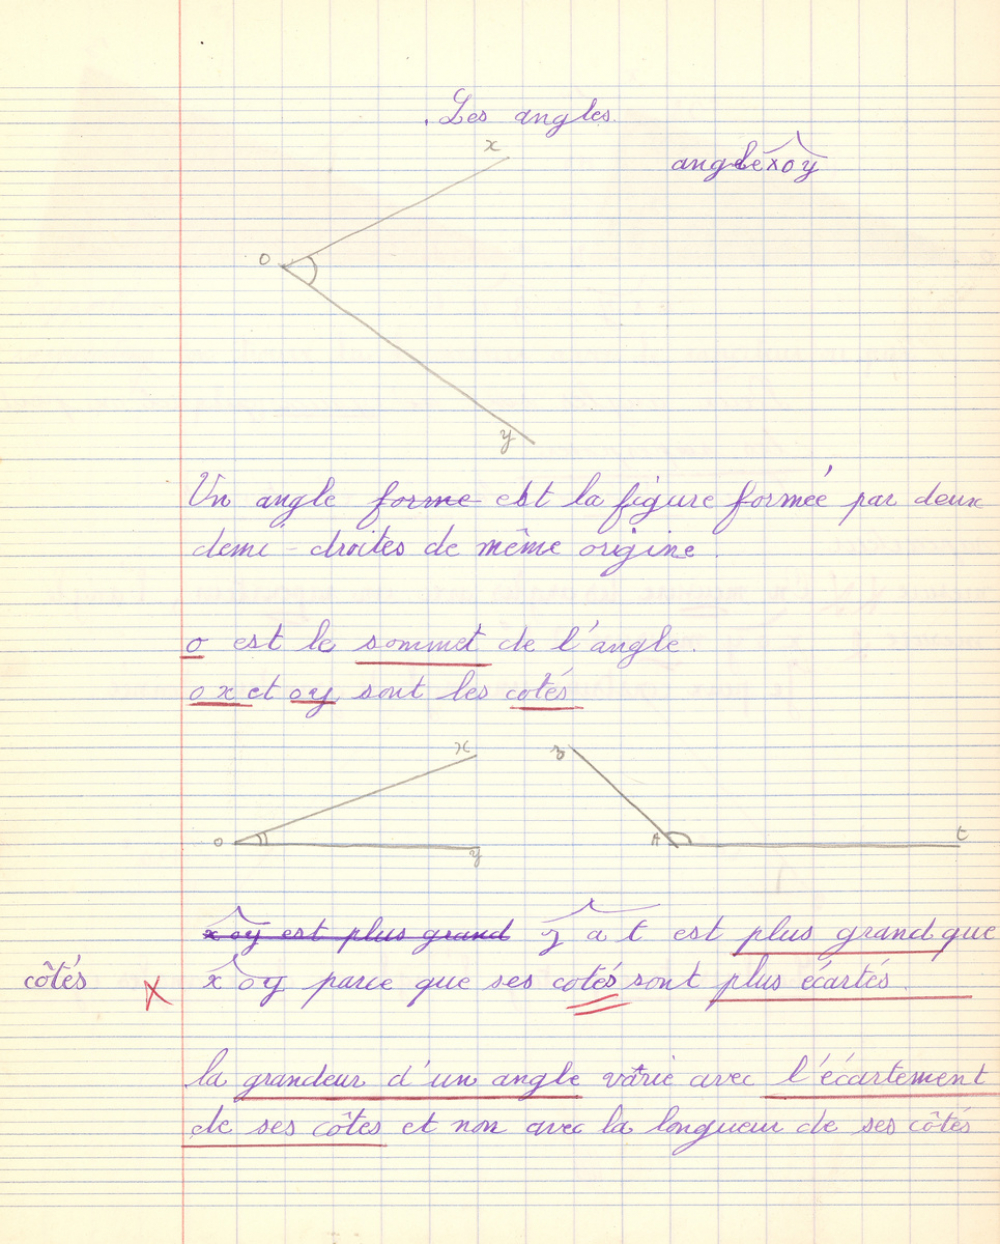 Les angles.
x
angle xoy
o
y
Un angle forme est la figure formée par deux
demi-droites de même origine.
o est le sommet de l'angle.
ox et oy sont les cotés
x
z
o
y
A
t
xoy est plus grand z a t est plus grand que
côtés x xoy parce que ses cotés sont plus écartés.
la grandeur d'un angle varie avec l'écartement
de ses côtes et non avec la longueur de ses côtés